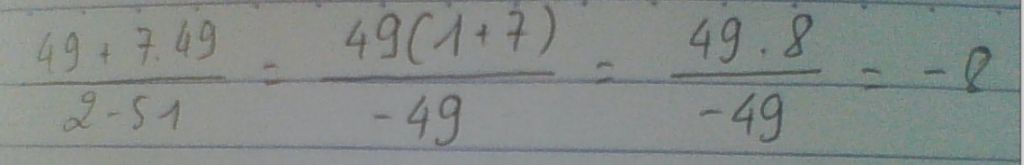 (49 + 7.49)/(2-51) = (49(1+7))/(-49) = (49.8)/(-49) = -8